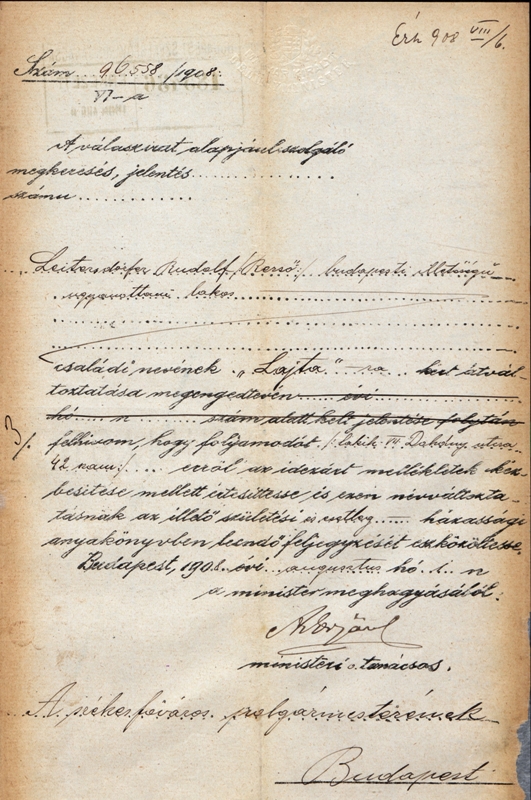 Érk 908 VIII/6.
Szám 96558/1908.
VI-a
A válaszirat alapjául szolgáló
megkeresés, jelentés ..........
száma ..........
Leitersdorfer Rudolf /Rezső:/ budapesti illetőségű
ugyanottani lakos
családi nevének "Lajta"-ra kért átvál-
toztatása megengedtetvén évi
hó n szám alatt kelt jelentése folytán
3/. felhivom, hogy folyamodót /:lakik IV. Dohány utcza
42 szám:/ erről az idezárt mellékletek kéz-
besitése mellett értesittesse és ezen névváltozta-
tásnak az illető születési és esetleg házassági
anyakönyvben leendő feljegyzését eszközöltesse.
Budapest, 1908. évi augusztus hó 1. n
a minister meghagyásából:
ministeri o. tanácsos.
A székesfőváros polgármesterének
Budapest